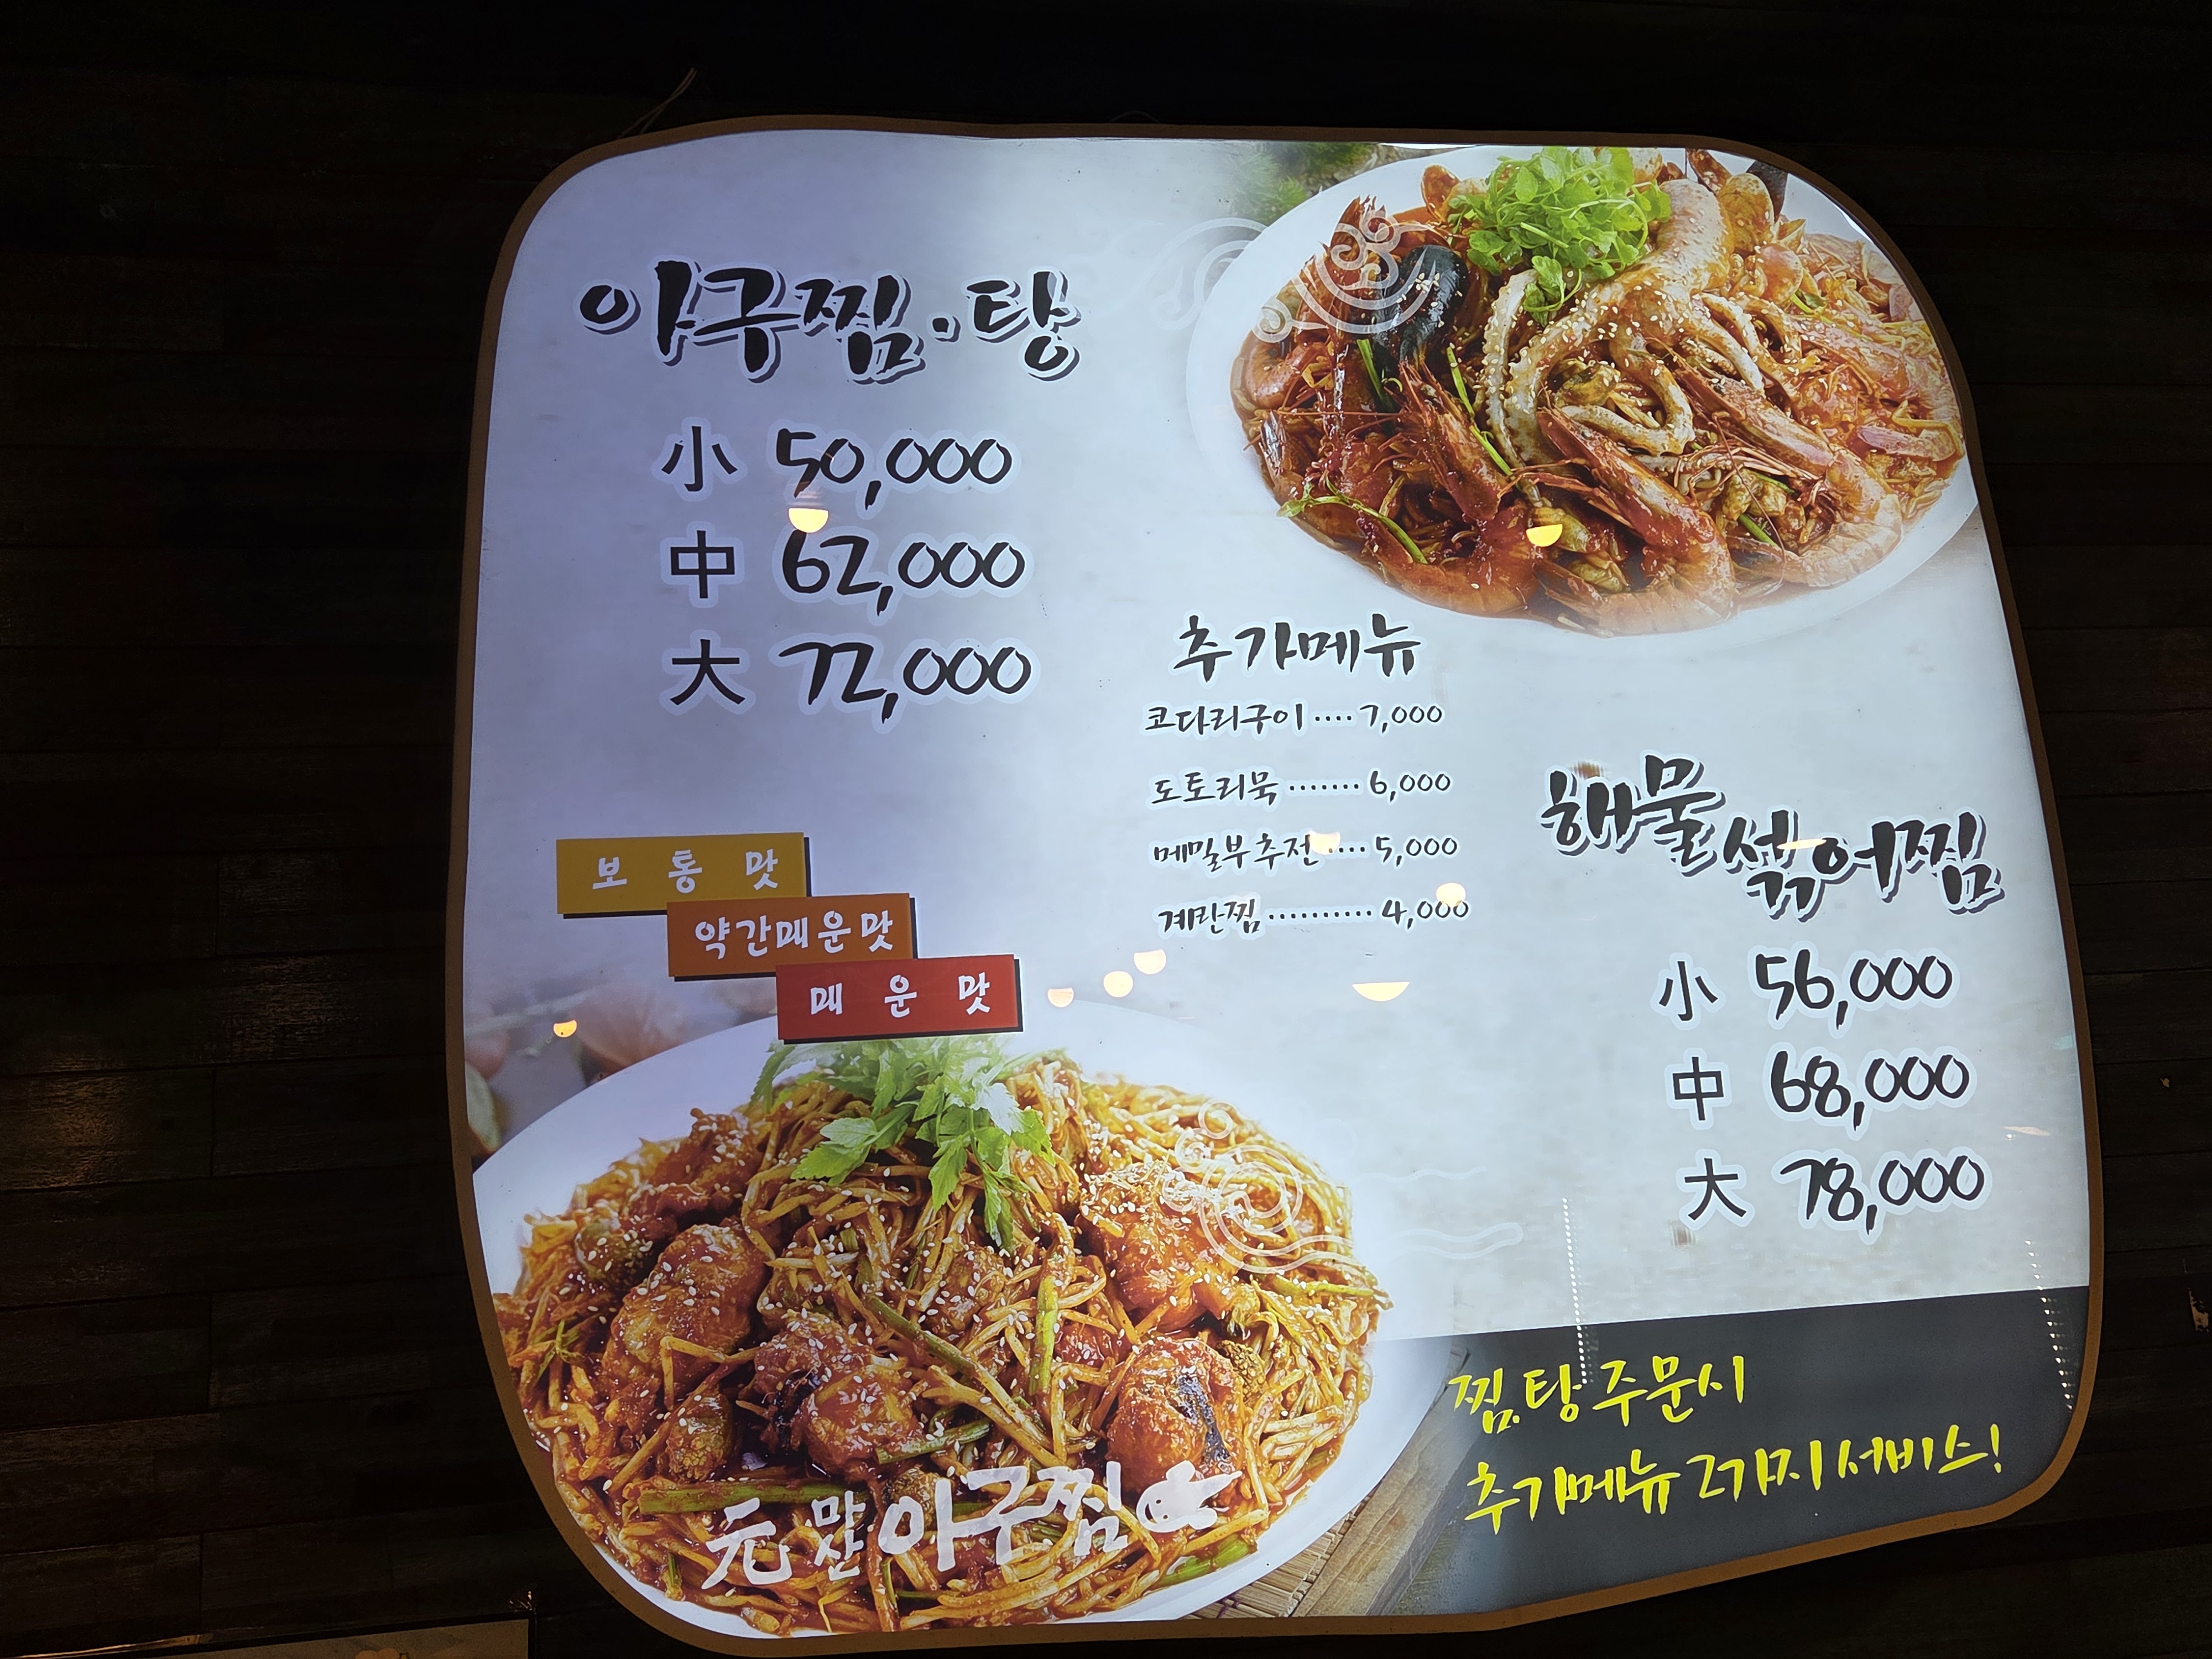 아구찜·탕
小 50,000
中 62,000
大 72,000
추가메뉴
코다리구이 ···· 7,000
도토리묵 ······· 6,000
메밀부추전 ···· 5,000
계란찜 ·········· 4,000
해물섞어찜
小 56,000
中 68,000
大 78,000
보통맛
약간매운맛
매운맛
元 맛 아구찜
찜.탕 주문시
추가메뉴 2가지 서비스!